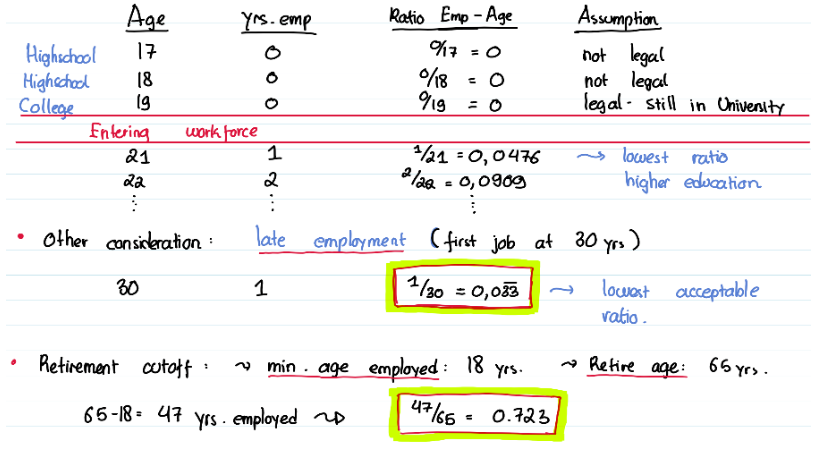 Age yrs.emp Ratio Emp-Age Assumption
Highschool 17 0 0/17 = 0 not legal
Highschool 18 0 0/18 = 0 not legal
College 19 0 0/19 = 0 legal - still in University
Entering workforce
21 1 1/21 = 0,0476 ~> lowest ratio
22 2 2/22 = 0,0909 higher education
⋮ ⋮ ⋮
• Other consideration: late employment (first job at 30 yrs)
30 1 1/30 = 0,033 → lowest acceptable
ratio.
• Retirement cutoff: ~> min. age employed: 18 yrs. ~> Retire age: 65 yrs.
65-18= 47 yrs. employed ~> 47/65 = 0.723